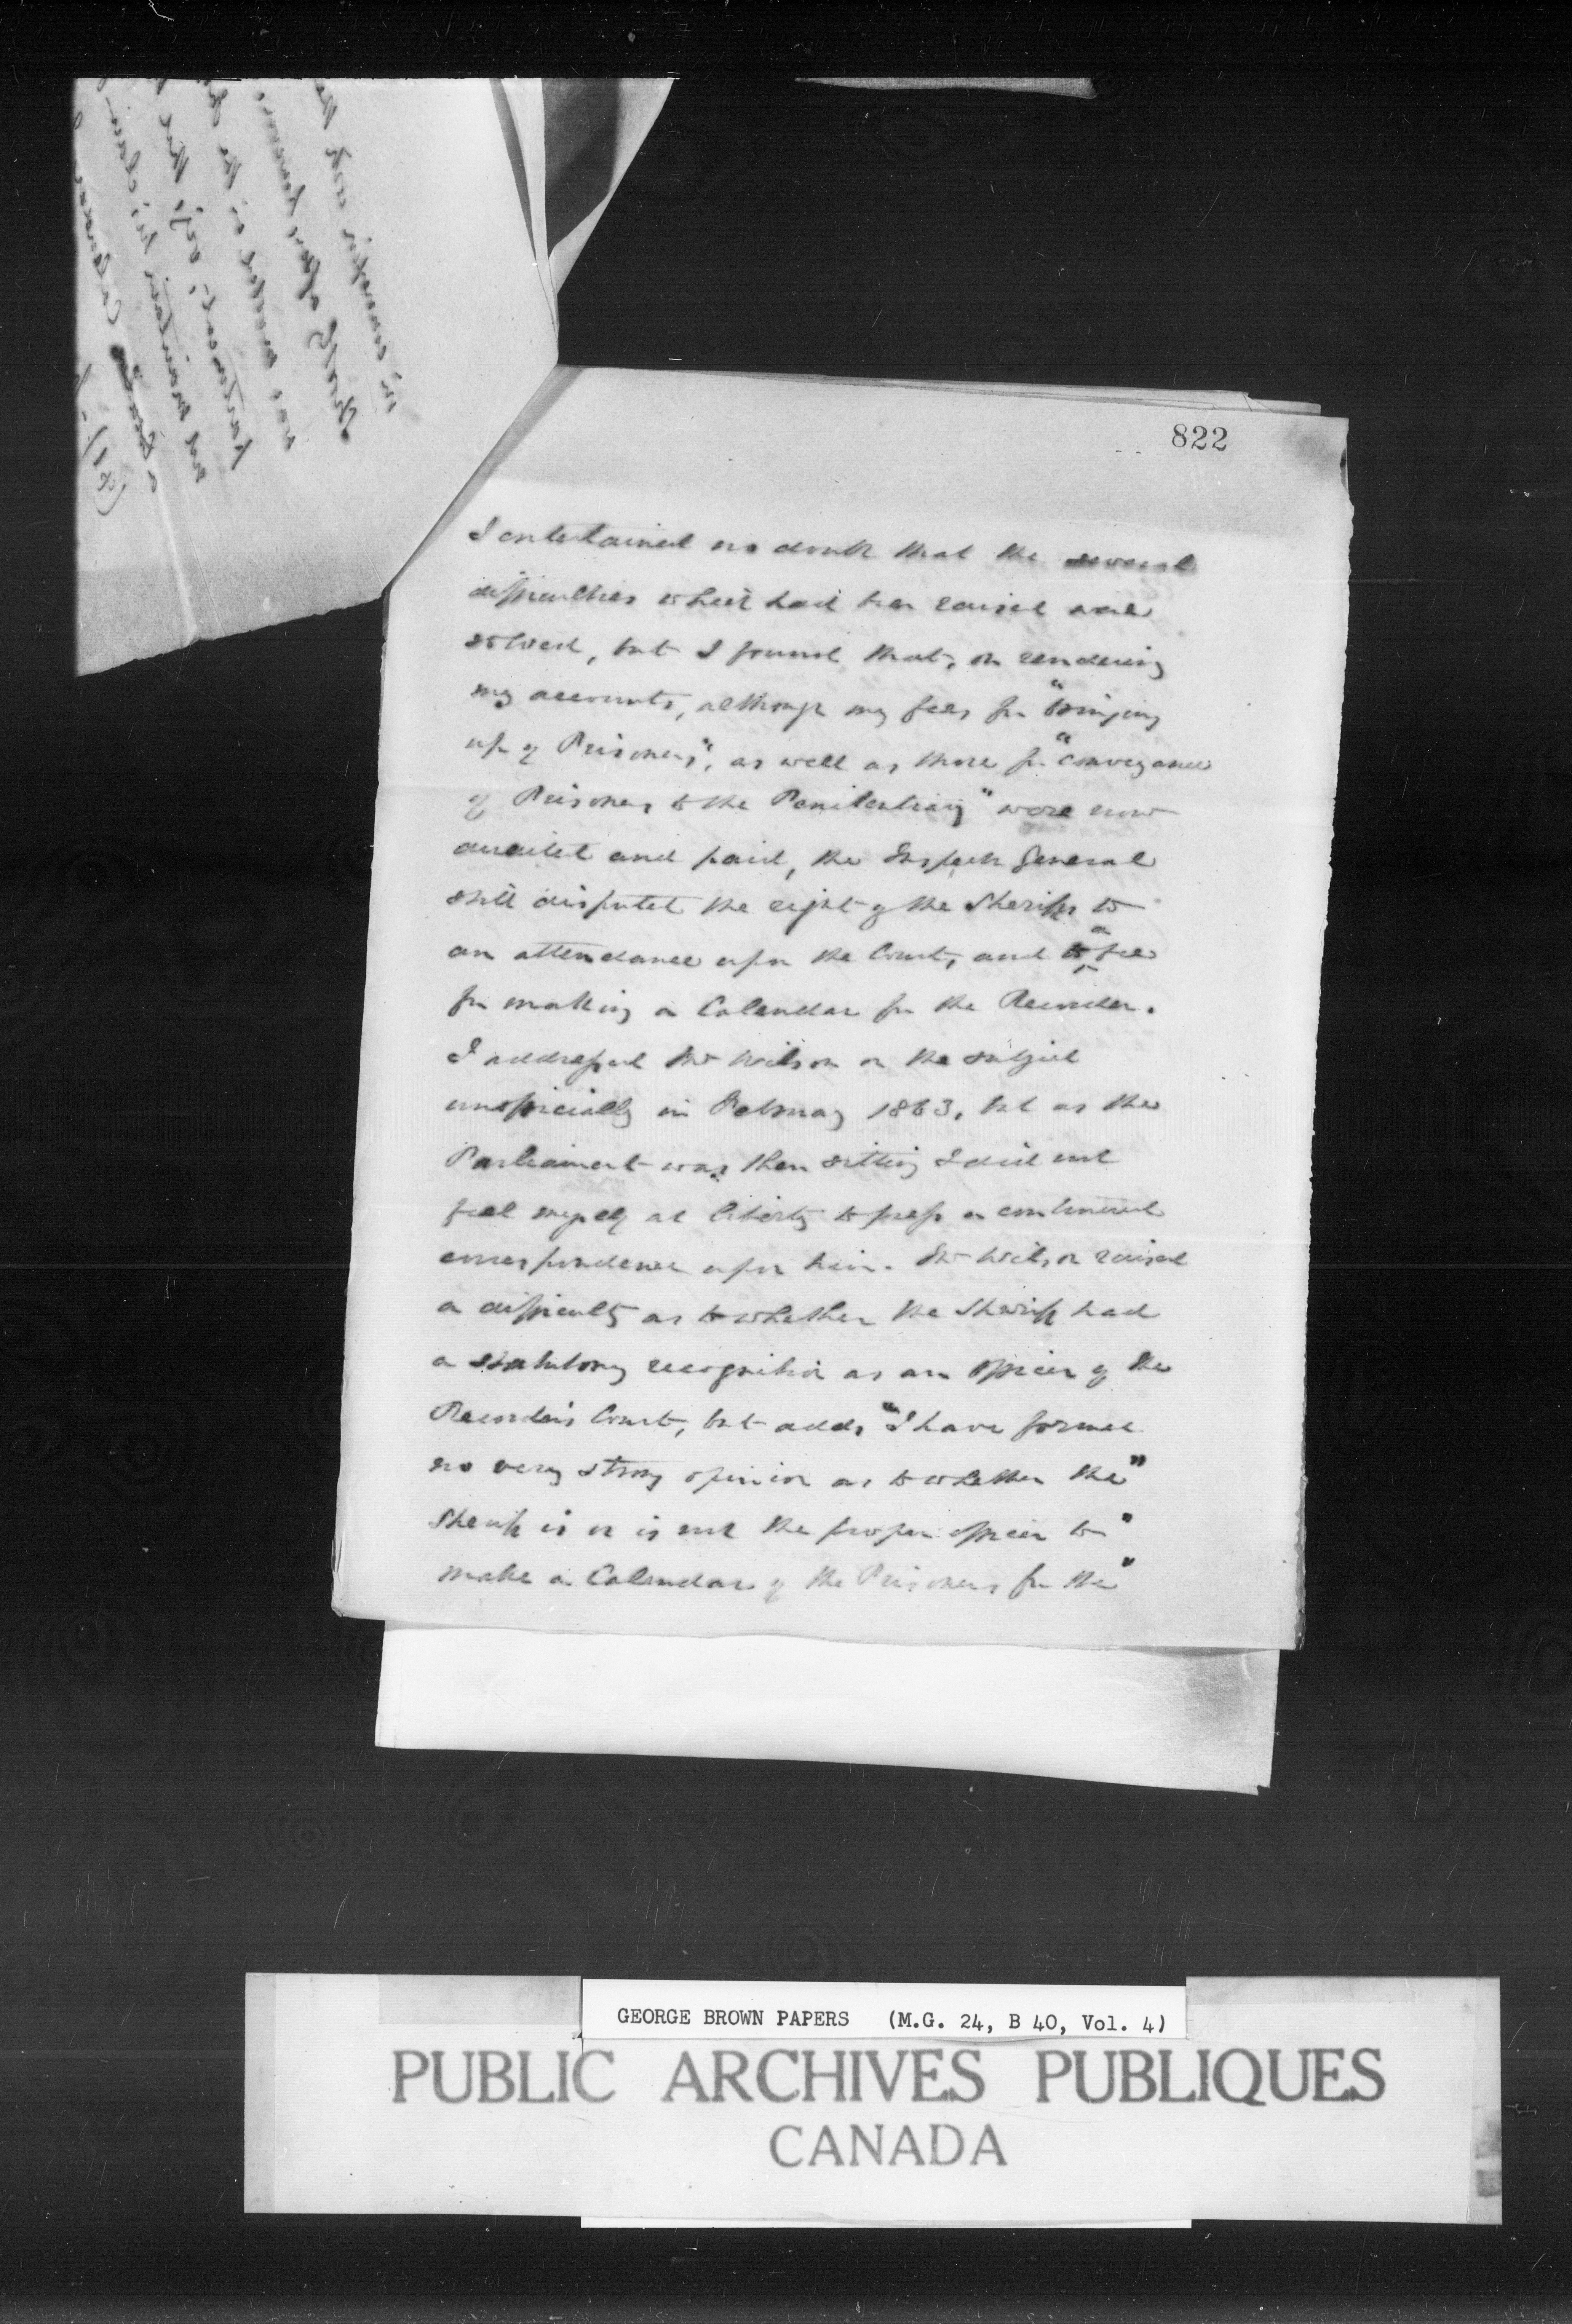 822
I entertained no doubt that the several
difficulties which had been raised were
solved, but I found that, on rendering
my accounts, although my fees for "bringing
up of Prisoners", as well as those for "conveyance
of Prisoners to the Penitentiary" were now
audited and paid, the Inspector General
still disputed the right of the Sheriff to
an attendance upon the Court, and to a fee
for making a Calendar for the Recorder.
I addressed Mr Wilson on the subject
unofficially in February 1863, but as the
Parliament was then sitting I did not
feel myself at liberty to press a continued
correspondence upon him. Mr Wilson raised
a difficulty as to whether the Sheriff had
a statutory recognition as an officer of the
Recorder's Court, but adds "I have formed
no very strong opinion as to whether the"
Sheriff is or is not the proper officer to"
make a Calendar of the Prisoners for the"
GEORGE BROWN PAPERS (M.G. 24, B 40, Vol. 4)
PUBLIC ARCHIVES PUBLIQUES
CANADA